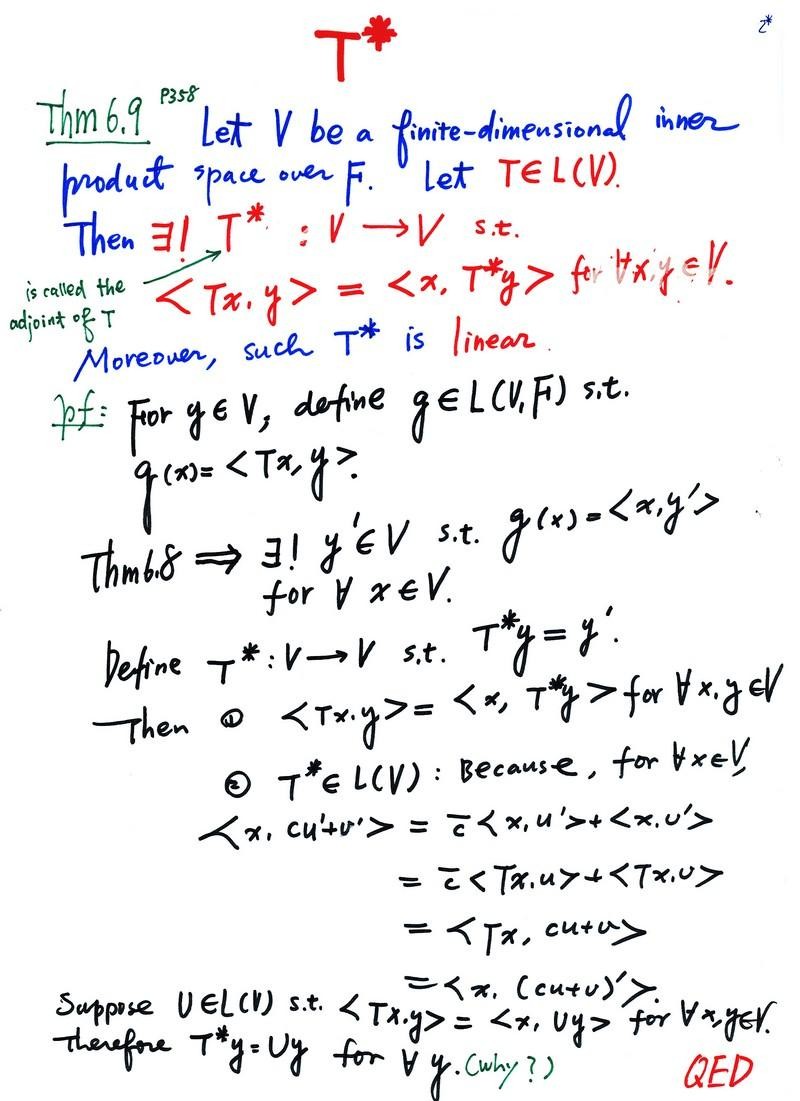 2*
T*
Thm 6.9 P358 Let V be a finite-dimensional inner
product space over F. Let T∈L(V).
Then ∃! T* : V → V s.t.
is called the
adjoint of T
<Tx, y> = <x, T*y> for ∀x,y ∈ V.
Moreover, such T* is linear.
pf: For y ∈ V, define g ∈ L(V,F) s.t.
g(x)= <Tx, y>.
Thm6.8 ⟹ ∃! y'∈V s.t. g(x)=<x,y'>
for ∀ x∈V.
Define T*: V → V s.t. T*y = y'.
Then ① <Tx.y> = <x, T*y> for ∀x.y∈V
② T*∈ L(V) : Because, for ∀x∈V,
<x, cu'+v'> = c̅<x,u'>+<x.v'>
= c̅<Tx.u>+<Tx.v>
= <Tx, cu+v>
= <x, (cu+v)'>.
Suppose U∈L(V) s.t. <Tx.y> = <x, Uy> for ∀x,y∈V.
Therefore T*y=Uy for ∀ y. (why?) QED